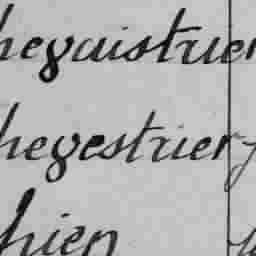 hegaistrier
hegestrier
hien